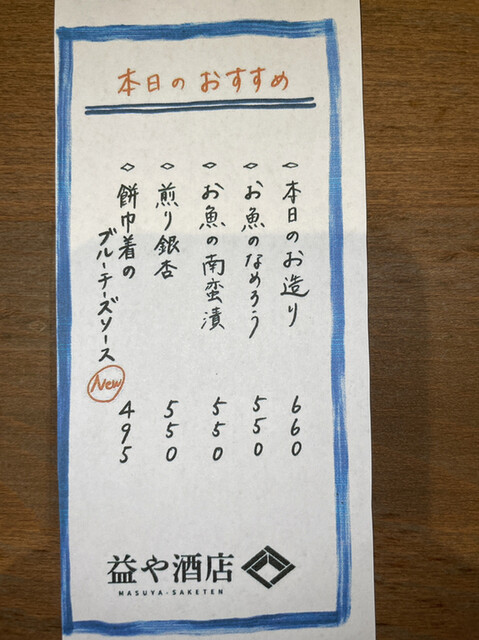 本日のおすすめ
本日のお造り 660
お魚のなめろう 550
お魚の南蛮漬 550
煎り銀杏 550
餅巾着の
ブルーチーズソース New 495
益や酒店
MASUYA-SAKETEN